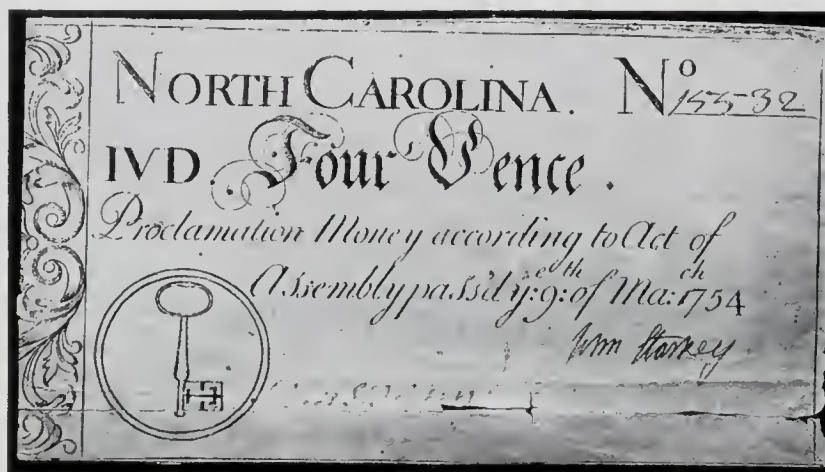 NORTH CAROLINA. Nº 15532
IVD. Four Pence.
Proclamation Money according to Act of
Assembly pass'd yᵉ: 9ᵗʰ: of Maᶜʰ: 1754
Wm Starkey